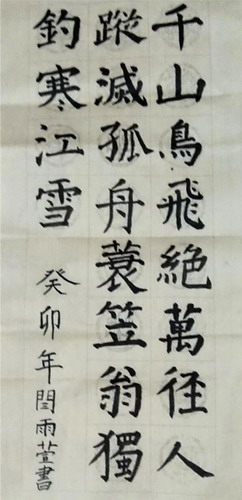 千山鳥飛絕萬徑人
蹤滅孤舟蓑笠翁獨
釣寒江雪
癸卯年閆雨萱書